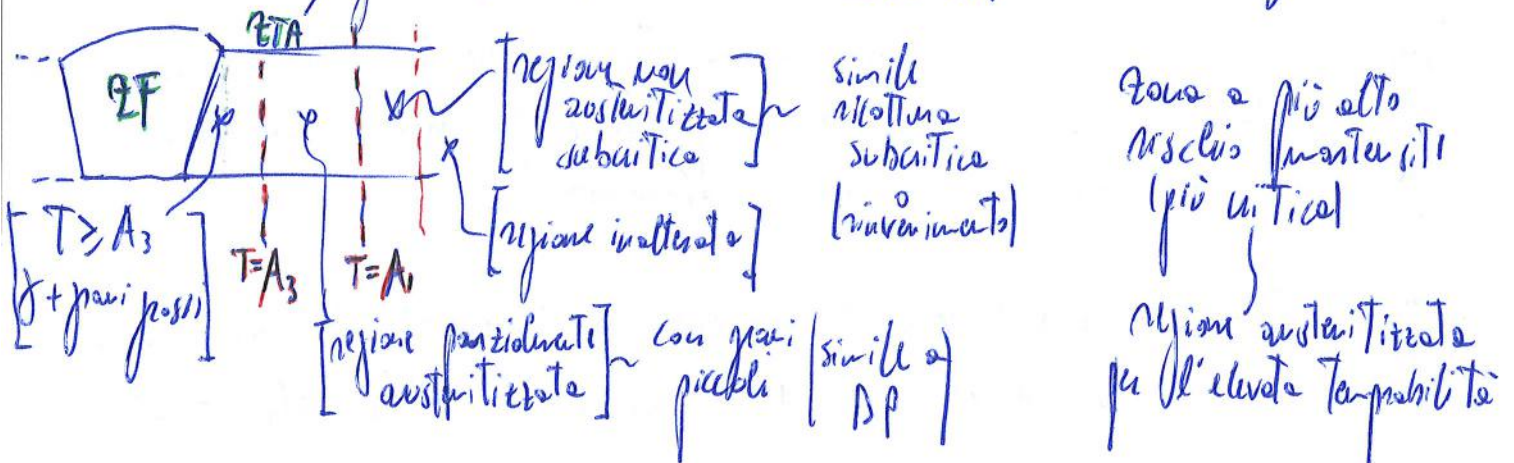 ZTA
ZF
[regione non
austenitizzata
subcritica]
simile
ricottura
subcritica
o
(rinvenimento)
[regione inalterata]
[T ≥ A₃
γ + grani grossi]
T=A₃
T=A₁
[regione parzialmente
austenitizzata]
con grani
piccoli
(simile a
DP)
zona a più alto
rischio martensite
(più critica)
regione austenitizzata
per l'elevata temprabilità